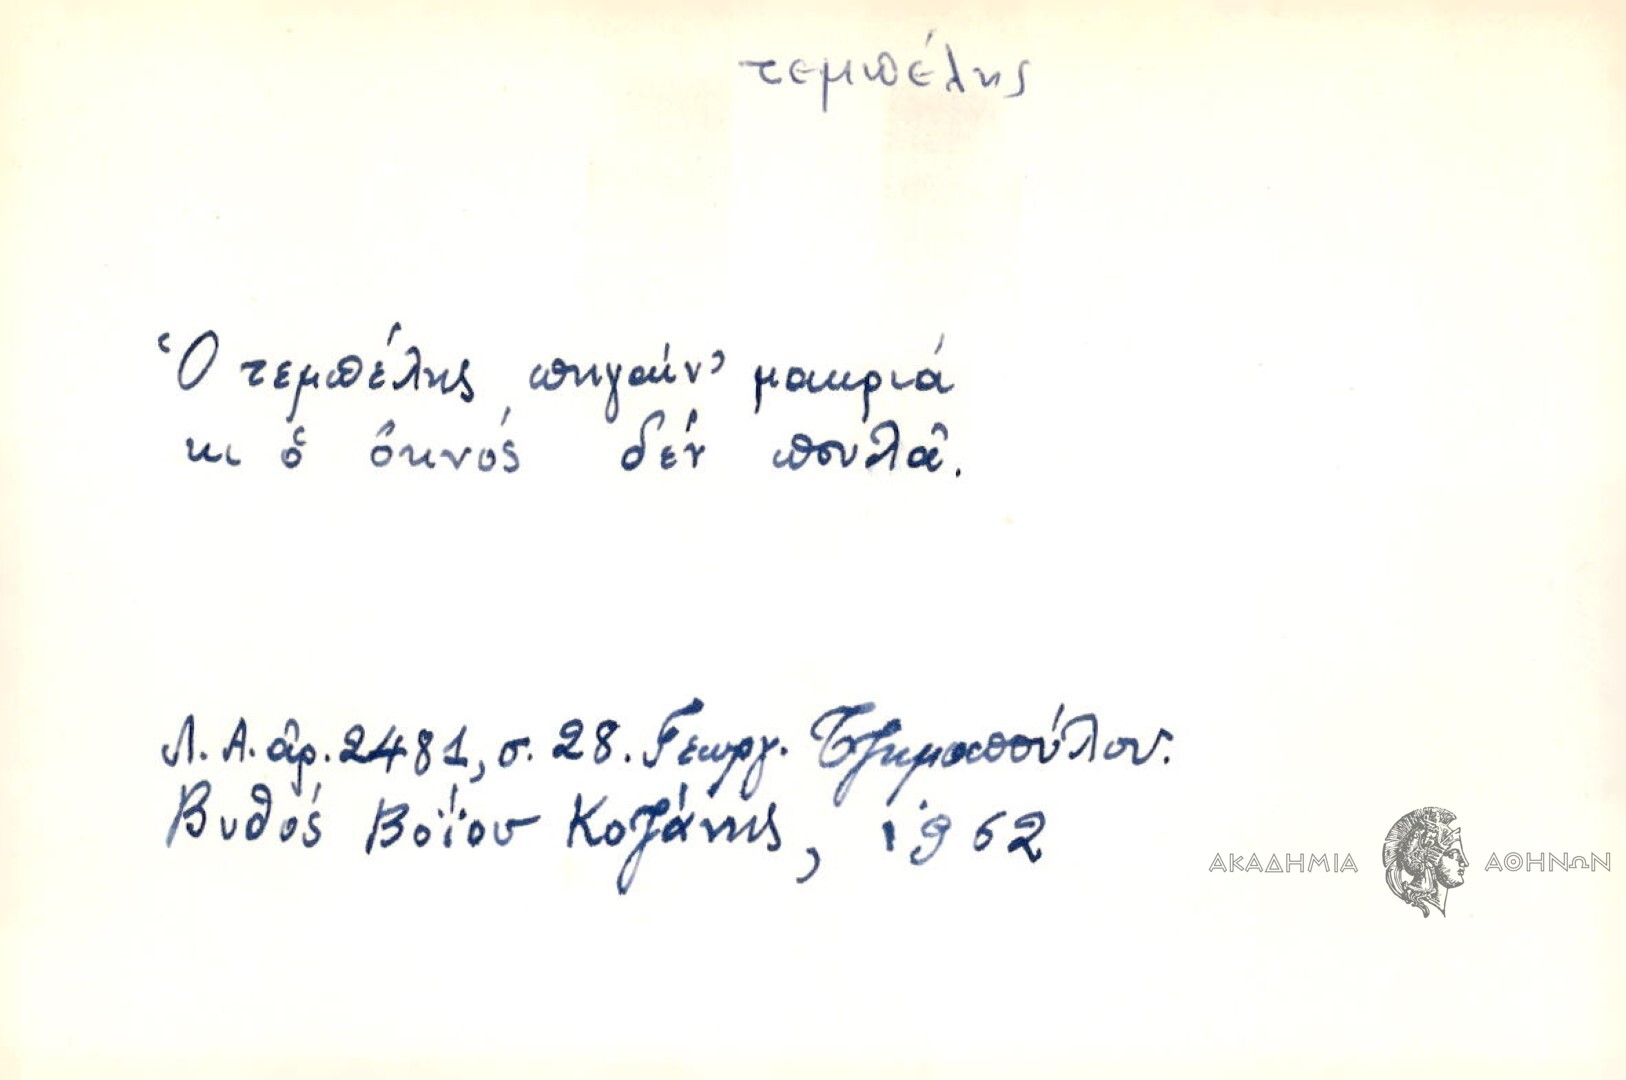 τεμπέλης
Ὁ τεμπέλης πηγαίν' μακριά
κι ὁ ὀκνός δέν πουλᾶ.
Λ. Α. ἀρ. 2481, σ. 28. Γεωργ. Τζημοπούλου.
Βυθός Βοΐου Κοζάνης, 1962
ΑΚΑΔΗΜΙΑ ΑΘΗΝΩΝ